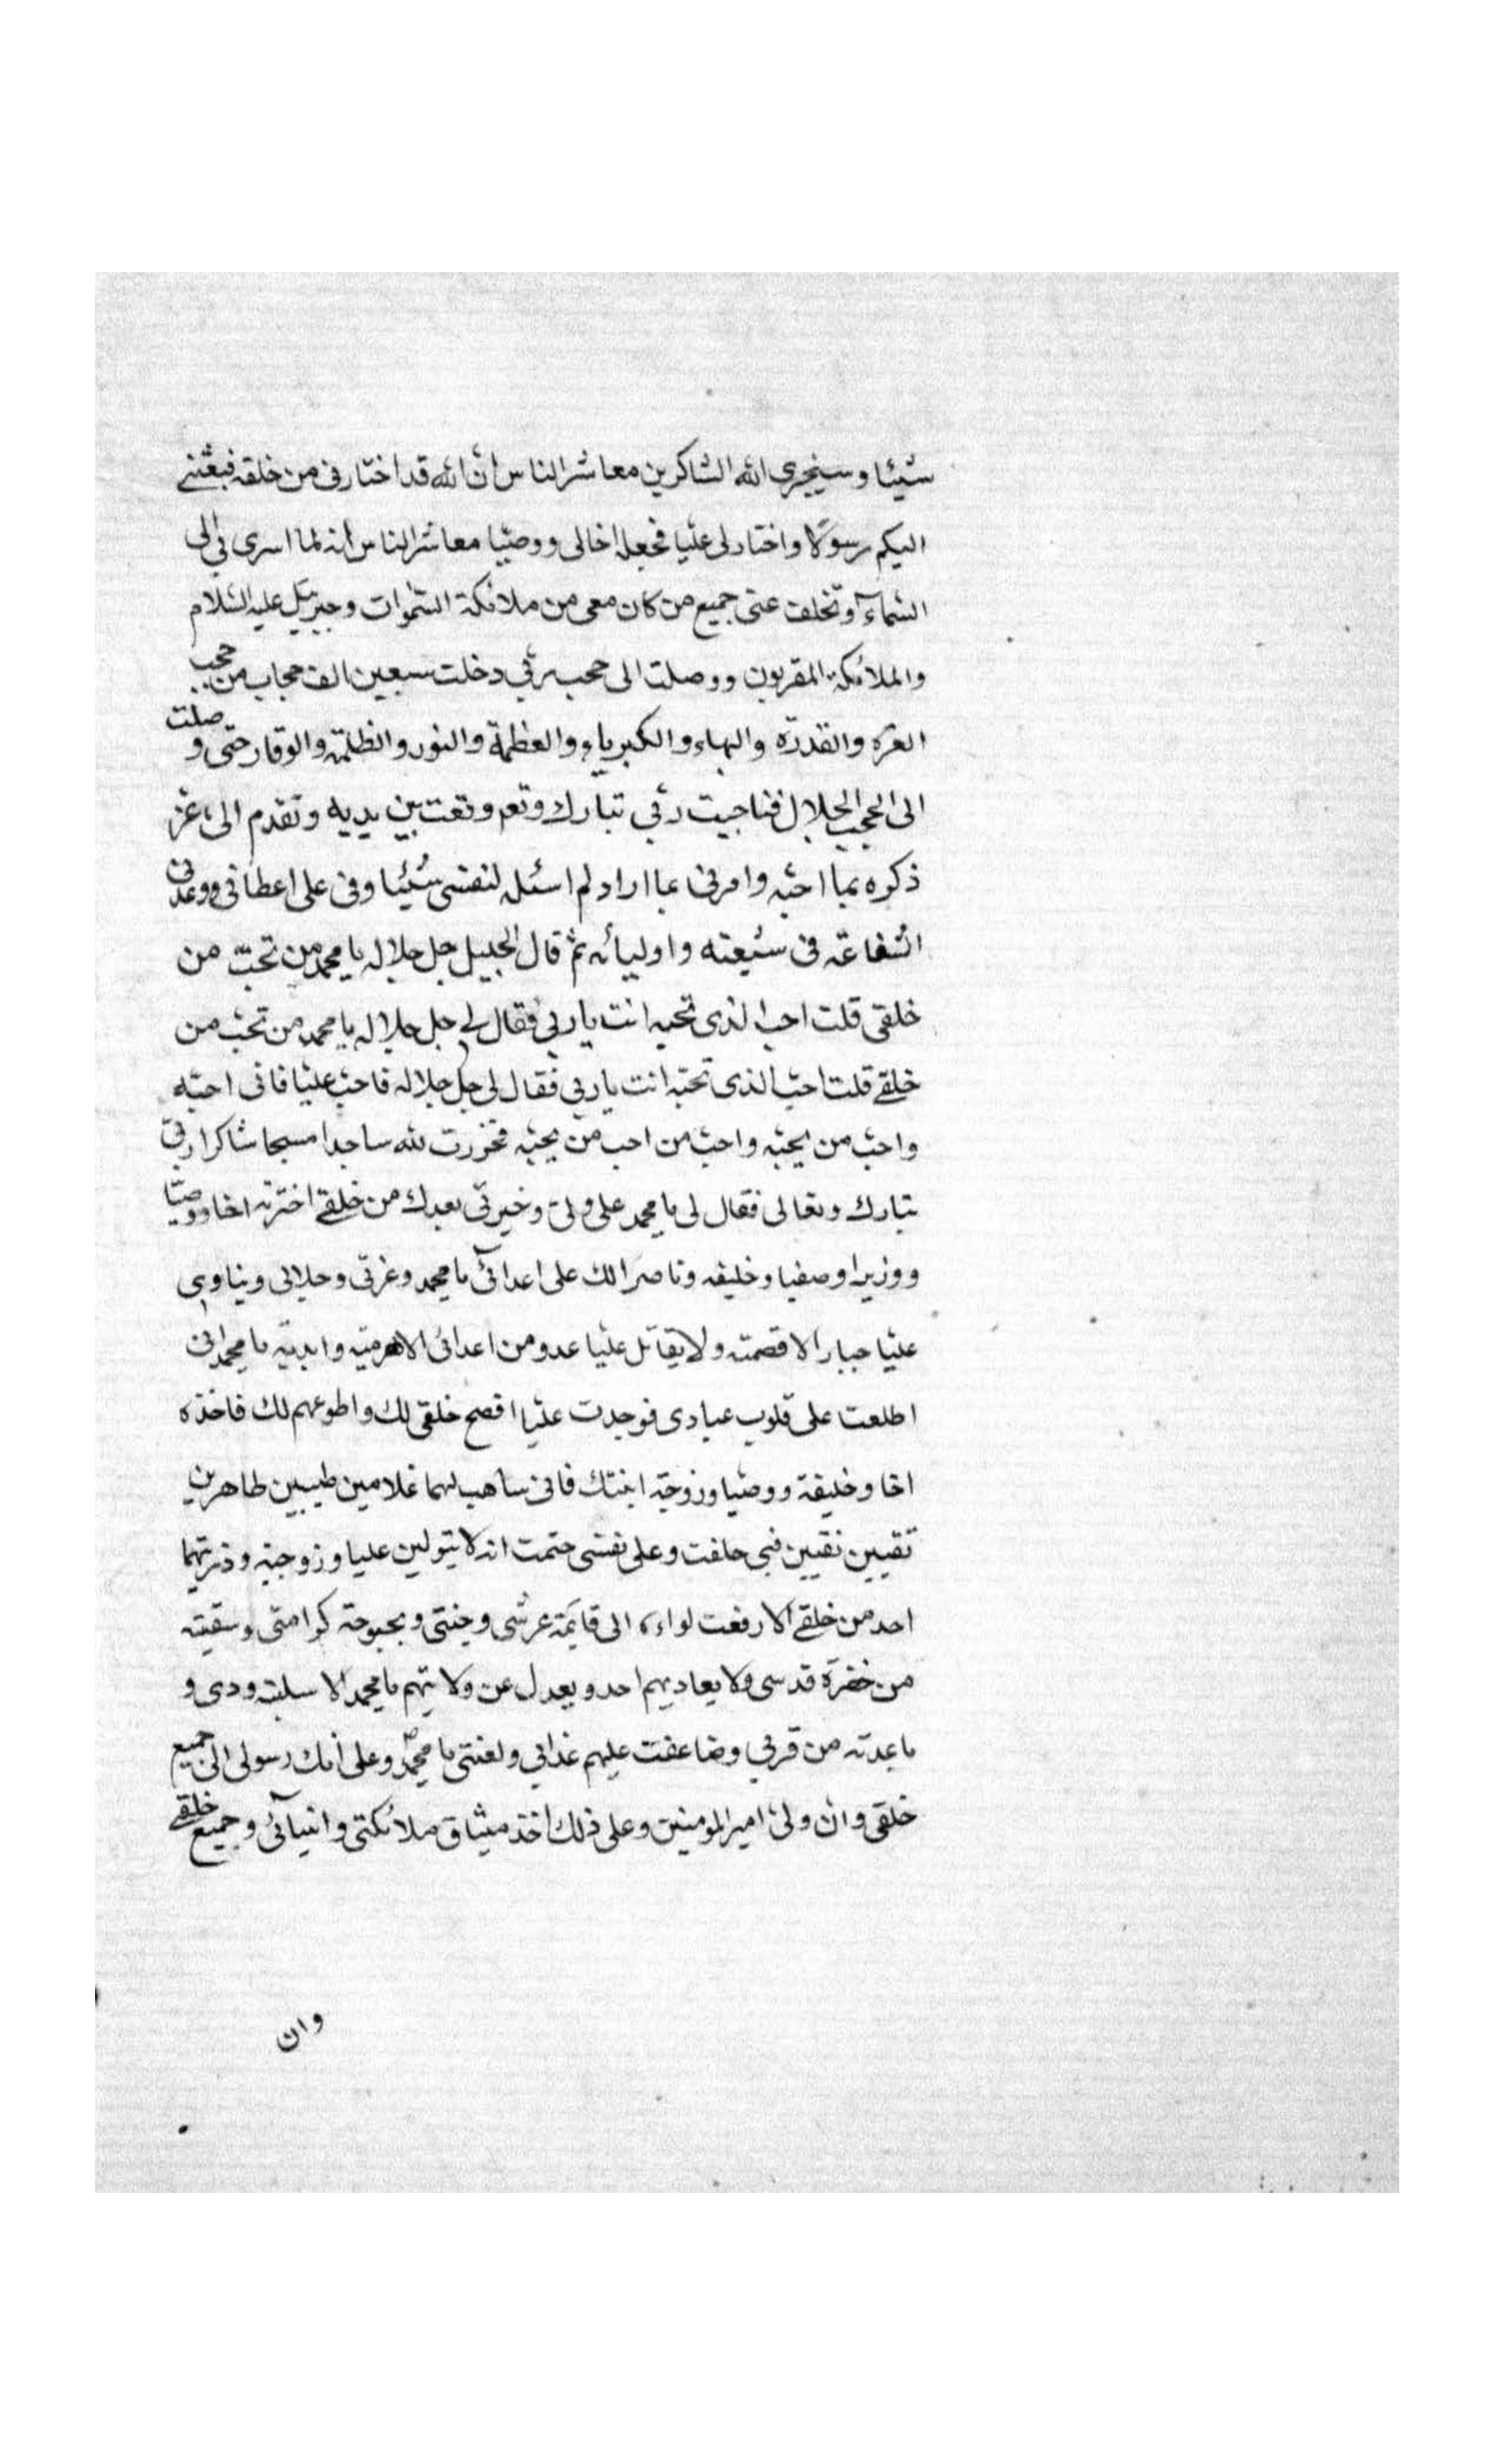 شيئا وسيجزى الله الشاكرين معاشر الناس ان الله قد اختارنى من خلقه فبعثنے
اليكم رسولا واختار لى عليا فجعله اخا لى ووصيّا معاشر الناس انه لما اسرى بى الى
السّماۤء وتخلف عنى جميع من كان معى من ملائكة السّموات وجبرئيل عليه السّلام
والملائكة المقربون ووصلت الى حجب ربّى دخلت سبعين الف حجاب من حجب
العزة والقدرة والبهاء والكبرياء والعظمة والنور والظلمة والوقار حتى وصلت
الى الحجب الجلال فناجيت ربّى تبارك وتعم وقعت بين يديه وتقدم الىّ عز
ذكره بما احبّه وامرنى بما اراد لم اسئله لنفسى شيئا وفى على اعطانى ووعدنى
الشفاعة فى شيعته واوليائه ثم قال الجليل جل جلاله يا محمد من تحبّ من
خلقى قلت احب الذى تحبه انت يا ربى فقال لى جل جلاله يا محمد من تحبّ من
خلقے قلت احبّ الذى تحبّه انت يا ربى فقال لى جل جلاله فاحبّ عليّا فانى احبّه
واحبّ من يحبّه واحبّ من احب من يحبّه فخررت لله ساجدا مسبحا شاكرا ربّى
تبارك وتعالى فقال لى يا محمد على ولىّ وخيرتى بعدك من خلقے اخترته اخا ووصيّا
ووزيرا وصفيا وخليفه وناصرا لك على اعدائى يا محمد وعزتى وجلالى ويناوى
عليّا جبارا الا قصمته ولا يقاتل عليا عدو من اعدائى الا هزمته وابدته يا محمد انى
اطلعت على قلوب عبادى فوجدت عليّا افصح خلقى لك واطوعهم لك فاخذه
اخا وخليفة ووصيّا وزوجّه ابنتك فانى ساهب لهما غلامين طيبين طاهرين
تقيين نقيين فبى حلفت وعلى نفسى حتمت انه لا يتولين عليا وزوجته وذريتهما
احد من خلقے الا رفعت لواءه الى قايمة عرشى وجنتى وبحبوحة كرامتى وسقيته
من خضرة قدسى ولا يعاديهم احد ويعدل عن ولايتهم يا محمد الا سلبته ودى و
باعدته من قربى وضاعفت عليهم عذابى ولعنتى يا محمدؐ وعلى انك رسولى الى جميع
خلقى وان ولىّ امير المومنين وعلى ذلك اخذ ميثاق ملائكتى وانبيائى وجميع خلقے
وان